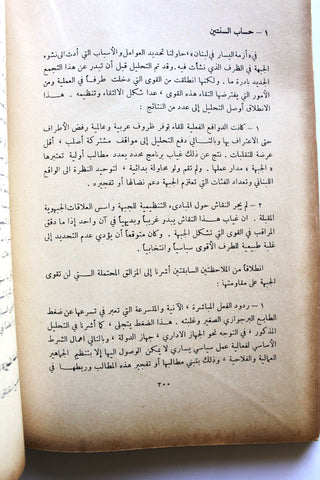 ١ – حساب السنتين
في «أزمة اليسار في لبنان» حاولنا تحديد العوامل والأسباب التي أدت الى نشوء
الجبهة في الظرف الذي نشأت فيه. وقد تم التحليل قبل أن تأخذ
الجبهة بادرة ما. ولكننا انطلقنا من القوى التي دخلت طرفاً في العملية ومن
الأمور التي يفترضها التقاء هذه القوى، عدا شكل الالتقاء وتنظيمه. هذا
الانطلاق أوصل التحليل إلى عدد من النتائج :
١ – كانت الدوافع الفعلية للقاء توفر ظروف عربية وعالمية رفض الأطراف
حق الاعتراف بها، وبالتالي دفع التحليل إلى مواقف مشتركة أصلب، أقل
عرضة للتقلبات. نتج عن ذلك غياب برنامج محدد بعدد مطالب أولية تعتبرها
الجبهة، مدار عملها. ولم تقم ولو محاولة بدائية، لتوحيد النظرة الى الواقع
اللبناني وتعداد الفئات التي تعتزم الجبهة دعم نضالها أو تفجيره.
٢ – لم يجر النقاش حول المبادىء التنظيمية للجبهة واسس العلاقات الجبهوية
المقبلة. ان غياب هذا النقاش يبدو غريباً وبديهياً في آن واحد إذا ما دقق
المراقب في القوى التي تشكل الجبهة. وكان متوقعاً أن يؤدي عدم التحديد إلى
غلبة طبيعية للطرف الأقوى سياسياً وانتخابياً.
انطلاقاً من الملاحظتين السابقتين أشرنا إلى المزالق المحتملة التي لن تقوى
الجبهة على مقاومتها :
١ – ردود الفعل المباشرة، الآنية والمتسرعة التي تعبر في تسرعها عن ضغط
الطابع البرجوازي الصغير وغلبته. هذا الضغط يتجلى، كما أشرنا في التحليل
المذكور، في التوجه نحو الجهاز الاداري، جهاز الدولة، وبالتالي اهمال الشرط
الأساسي لفعالية عمل سياسي يساري لا يمكن الوصول اليها إلا بتنظيم الجماهير
العمالية والفلاحية، وذلك بتبني مطالبها أو تفجير هذه المطالب وربطها في
٢٠٠